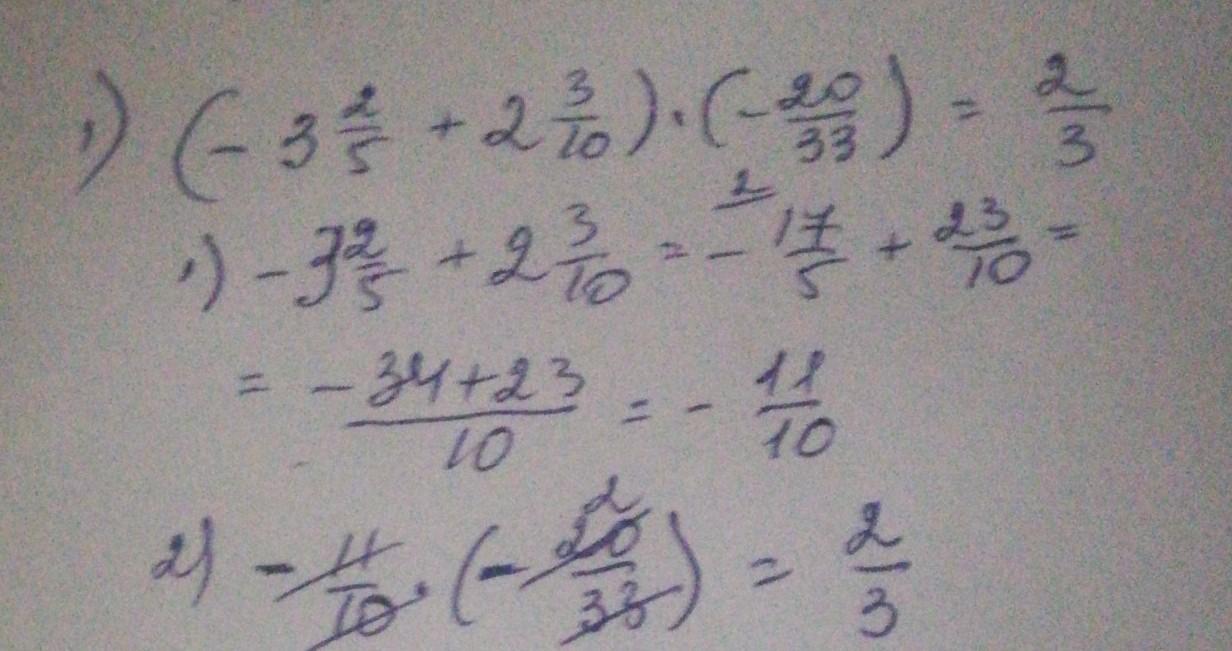 1) (- 3 2/5 + 2 3/10) · (- 20/33) = 2/3
1) - 3 2/5 + 2 3/10 = - 17/5 (2 + 23/10 =
= (-34+23)/10 = - 11/10
2) - 11/10 · (- 20/33) (2 = 2/3